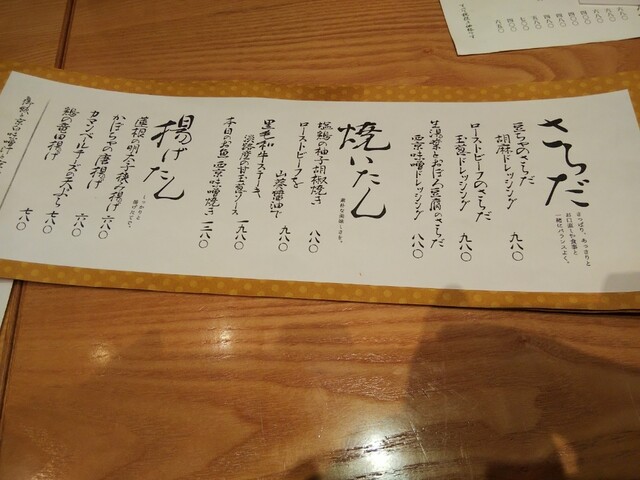 さらだ
さっぱり、あっさりと
お口直しや食事と
一緒にバランスよく。
豆ちゃのさらだ
胡麻ドレッシング
九八〇
ローストビーフのさらだ
玉葱ドレッシング
九八〇
生湯葉とおぼろ豆腐のさらだ
西京味噌ドレッシング
八八〇
焼いたん
素朴な美味しさを。
塩鶏の柚子胡椒焼き
八八〇
ローストビーフを
山葵醤油で
九八〇
黒毛和牛ステーキ
淡路産の甘玉葱ソース
一九八〇
本日のお魚 西京味噌焼き
一二八〇
揚げたん
からりと
揚げたてで。
蓮根の明太子挟み揚げ 六八〇
かぼちゃの唐揚げ
六八〇
カマンベールチーズの天ぷら
七八〇
鶏の竜田揚げ
七八〇